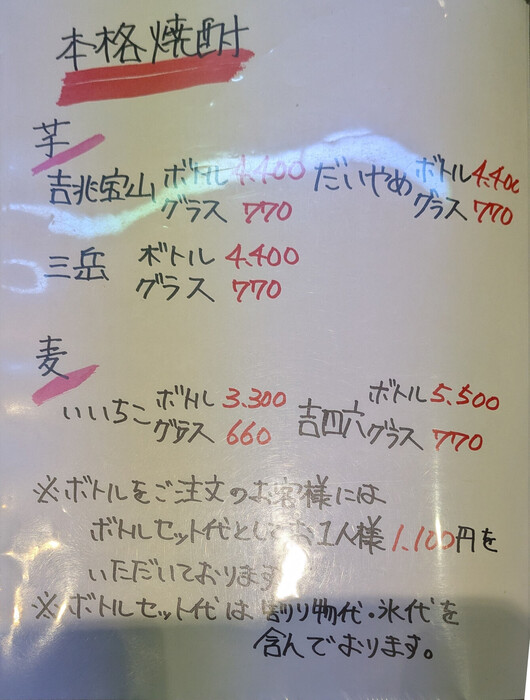 本格焼酎
芋
吉兆宝山 ボトル 4.400 だいやめ ボトル 4.400
グラス 770 グラス 770
三岳 ボトル 4.400
グラス 770
麦
いいちこ ボトル 3.300 吉四六 ボトル 5.500
グラス 660 グラス 770
※ボトルをご注文のお客様には
ボトルセット代としてお1人様1.100円を
いただいております
※ボトルセット代は割り物代・氷代を
含んでおります。